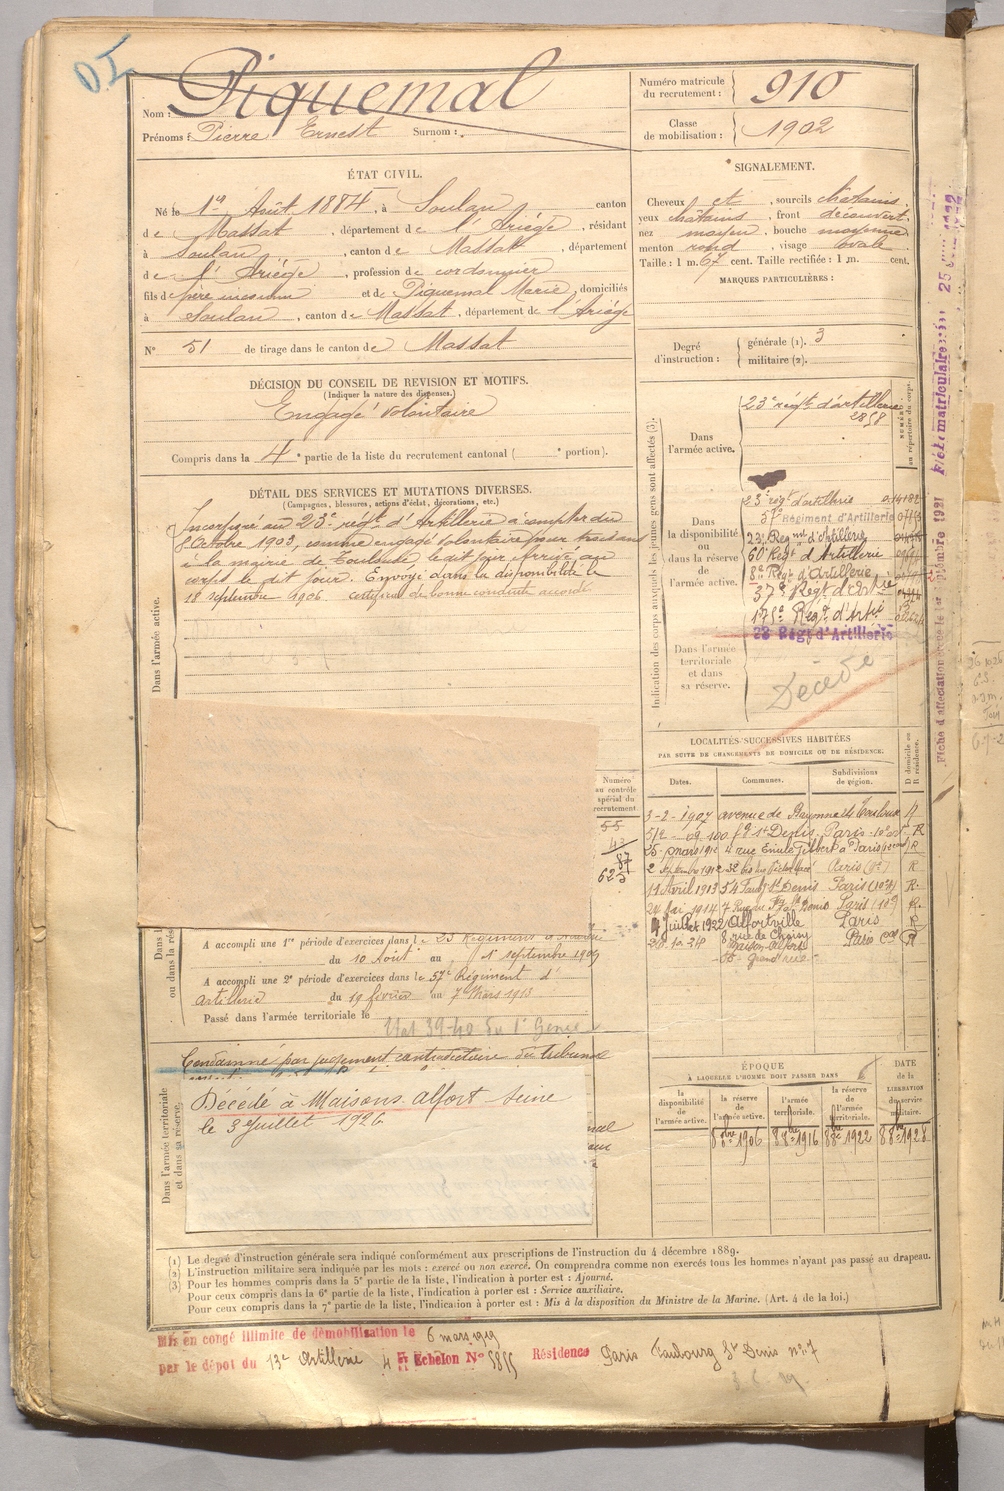 Nom : Piquemal
Prénoms : Pierre Ernest Surnom :
Numéro matricule du recrutement : 910
Classe de mobilisation : 1902
ÉTAT CIVIL.
Né le 1er Août 1884, à Soulan canton
de Massat, département de l'Ariége, résidant
à Soulan, canton de Massat, département
de l'Ariége, profession de cordonnier
fils de père inconnu et de Piquemal Marie, domiciliés
à Soulan, canton de Massat, département de l'Ariége
N° 51 de tirage dans le canton de Massat
SIGNALEMENT.
Cheveux et, sourcils châtains,
yeux châtains, front découvert,
nez moyen, bouche moyenne
menton rond, visage ovale
Taille : 1 m. 67 cent. Taille rectifiée : 1 m. cent.
MARQUES PARTICULIÈRES :
Degré d'instruction : générale (1). 3
militaire (2).
DÉCISION DU CONSEIL DE REVISION ET MOTIFS.
(Indiquer la nature des dispenses.)
Engagé volontaire
Compris dans la 4e partie de la liste du recrutement cantonal ( e portion).
DÉTAIL DES SERVICES ET MUTATIONS DIVERSES.
(Campagnes, blessures, actions d'éclat, décorations, etc.)
Dans l'armée active.
Incorporé au 23e régt d'Artillerie à compter du
8 Octobre 1903, comme engagé volontaire pour trois ans
à la mairie de Toulouse le dit jour arrivé au
corps le dit jour. Envoyé dans la disponibilité le
18 septembre 1906. certificat de bonne conduite accordé
Indication des corps auxquels les jeunes gens sont affectés (3).
NUMÉRO au répertoire du corps.
Dans l'armée active.
23e régt d'artillerie
2858
Dans la disponibilité ou dans la réserve de l'armée active.
23e régt d'artillerie
37e Régiment d'Artillerie
23e Regmt d'Artillerie
60e Regt d'Artillerie
8e Régt d'Artillerie
37e Regt d'Artie
175e Regt d'Artie
28 Régt d'Artillerie
Dans l'armée territoriale et dans sa réserve.
Décédé
Fiche matriculaire
Numéro au contrôle spécial du recrutement
55
43
87
623
LOCALITÉS SUCCESSIVES HABITÉES
PAR SUITE DE CHANGEMENTS DE DOMICILE OU DE RÉSIDENCE.
Dates. Communes. Subdivisions de région. D domicile ou R résidence.
3-2-1907 avenue de Toulouse R
100 fg St Denis Paris R
25 mars 1912 4 rue Emile Gilbert à Paris R
2 Septembre 1912 32 Paris R
11 Avril 1913 54 Faubg St Denis Paris (10e) R.
24 Mai 1914 7 Rue du Fg St Denis Paris (10e) R.
4 Juillet 1922 Alfortville Paris R
8 rue de Choisy Paris R
Maison-Alfort
Grand rue
A accompli une 1re période d'exercices dans le 23 Régiment d'
du 10 Août au 1er septembre 1909
A accompli une 2e période d'exercices dans le 57e Régiment d'
artillerie du 19 février au 7 Mars 1913
Passé dans l'armée territoriale le
Etat 39-40 du 1er Genie
Dans l'armée territoriale et dans sa réserve.
Condamné par jugement contradictoire du tribunal
Décédé à Maisons-Alfort Seine
le 3 Juillet 1926
ÉPOQUE
À LAQUELLE L'HOMME DOIT PASSER DANS
la disponibilité de l'armée active.
la réserve de l'armée active.
l'armée territoriale.
la réserve de l'armée territoriale.
DATE de la LIBÉRATION du service militaire.
8 8bre 1906 8 8bre 1916 8 8bre 1922 8 8bre 1928
(1) Le degré d'instruction générale sera indiqué conformément aux prescriptions de l'instruction du 4 décembre 1889.
(2) L'instruction militaire sera indiquée par les mots : exercé ou non exercé. On comprendra comme non exercés tous les hommes n'ayant pas passé au drapeau.
(3) Pour les hommes compris dans la 5e partie de la liste, l'indication à porter est : Ajourné.
Pour ceux compris dans la 6e partie de la liste, l'indication à porter est : Service auxiliaire.
Pour ceux compris dans la 7e partie de la liste, l'indication à porter est : Mis à la disposition du Ministre de la Marine. (Art. 4 de la loi.)
Mis en congé illimité de démobilisation le 6 mars 1919
par le dépôt du 13e Artillerie 4 Echelon N° 5815 Résidence Paris Faubourg St Denis n° 7